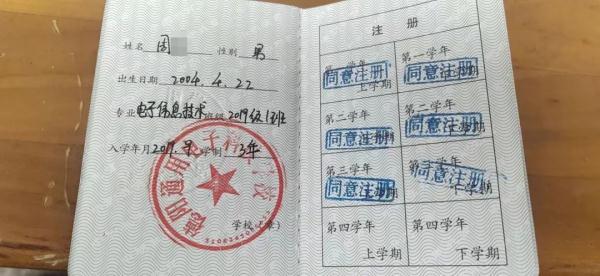 姓名 周 性别 男
出生日期 2004.4.22
专业 电子信息技术 班级 2019级1班
入学年月 2019.9 学制 3年
德阳通用电子科技学校
学校(章)
注册
第一学年 上学期 同意注册
第一学年 下学期 同意注册
第二学年 上学期 同意注册
第二学年 下学期 同意注册
第三学年 上学期 同意注册
第三学年 下学期 同意注册
第四学年 上学期
第四学年 下学期